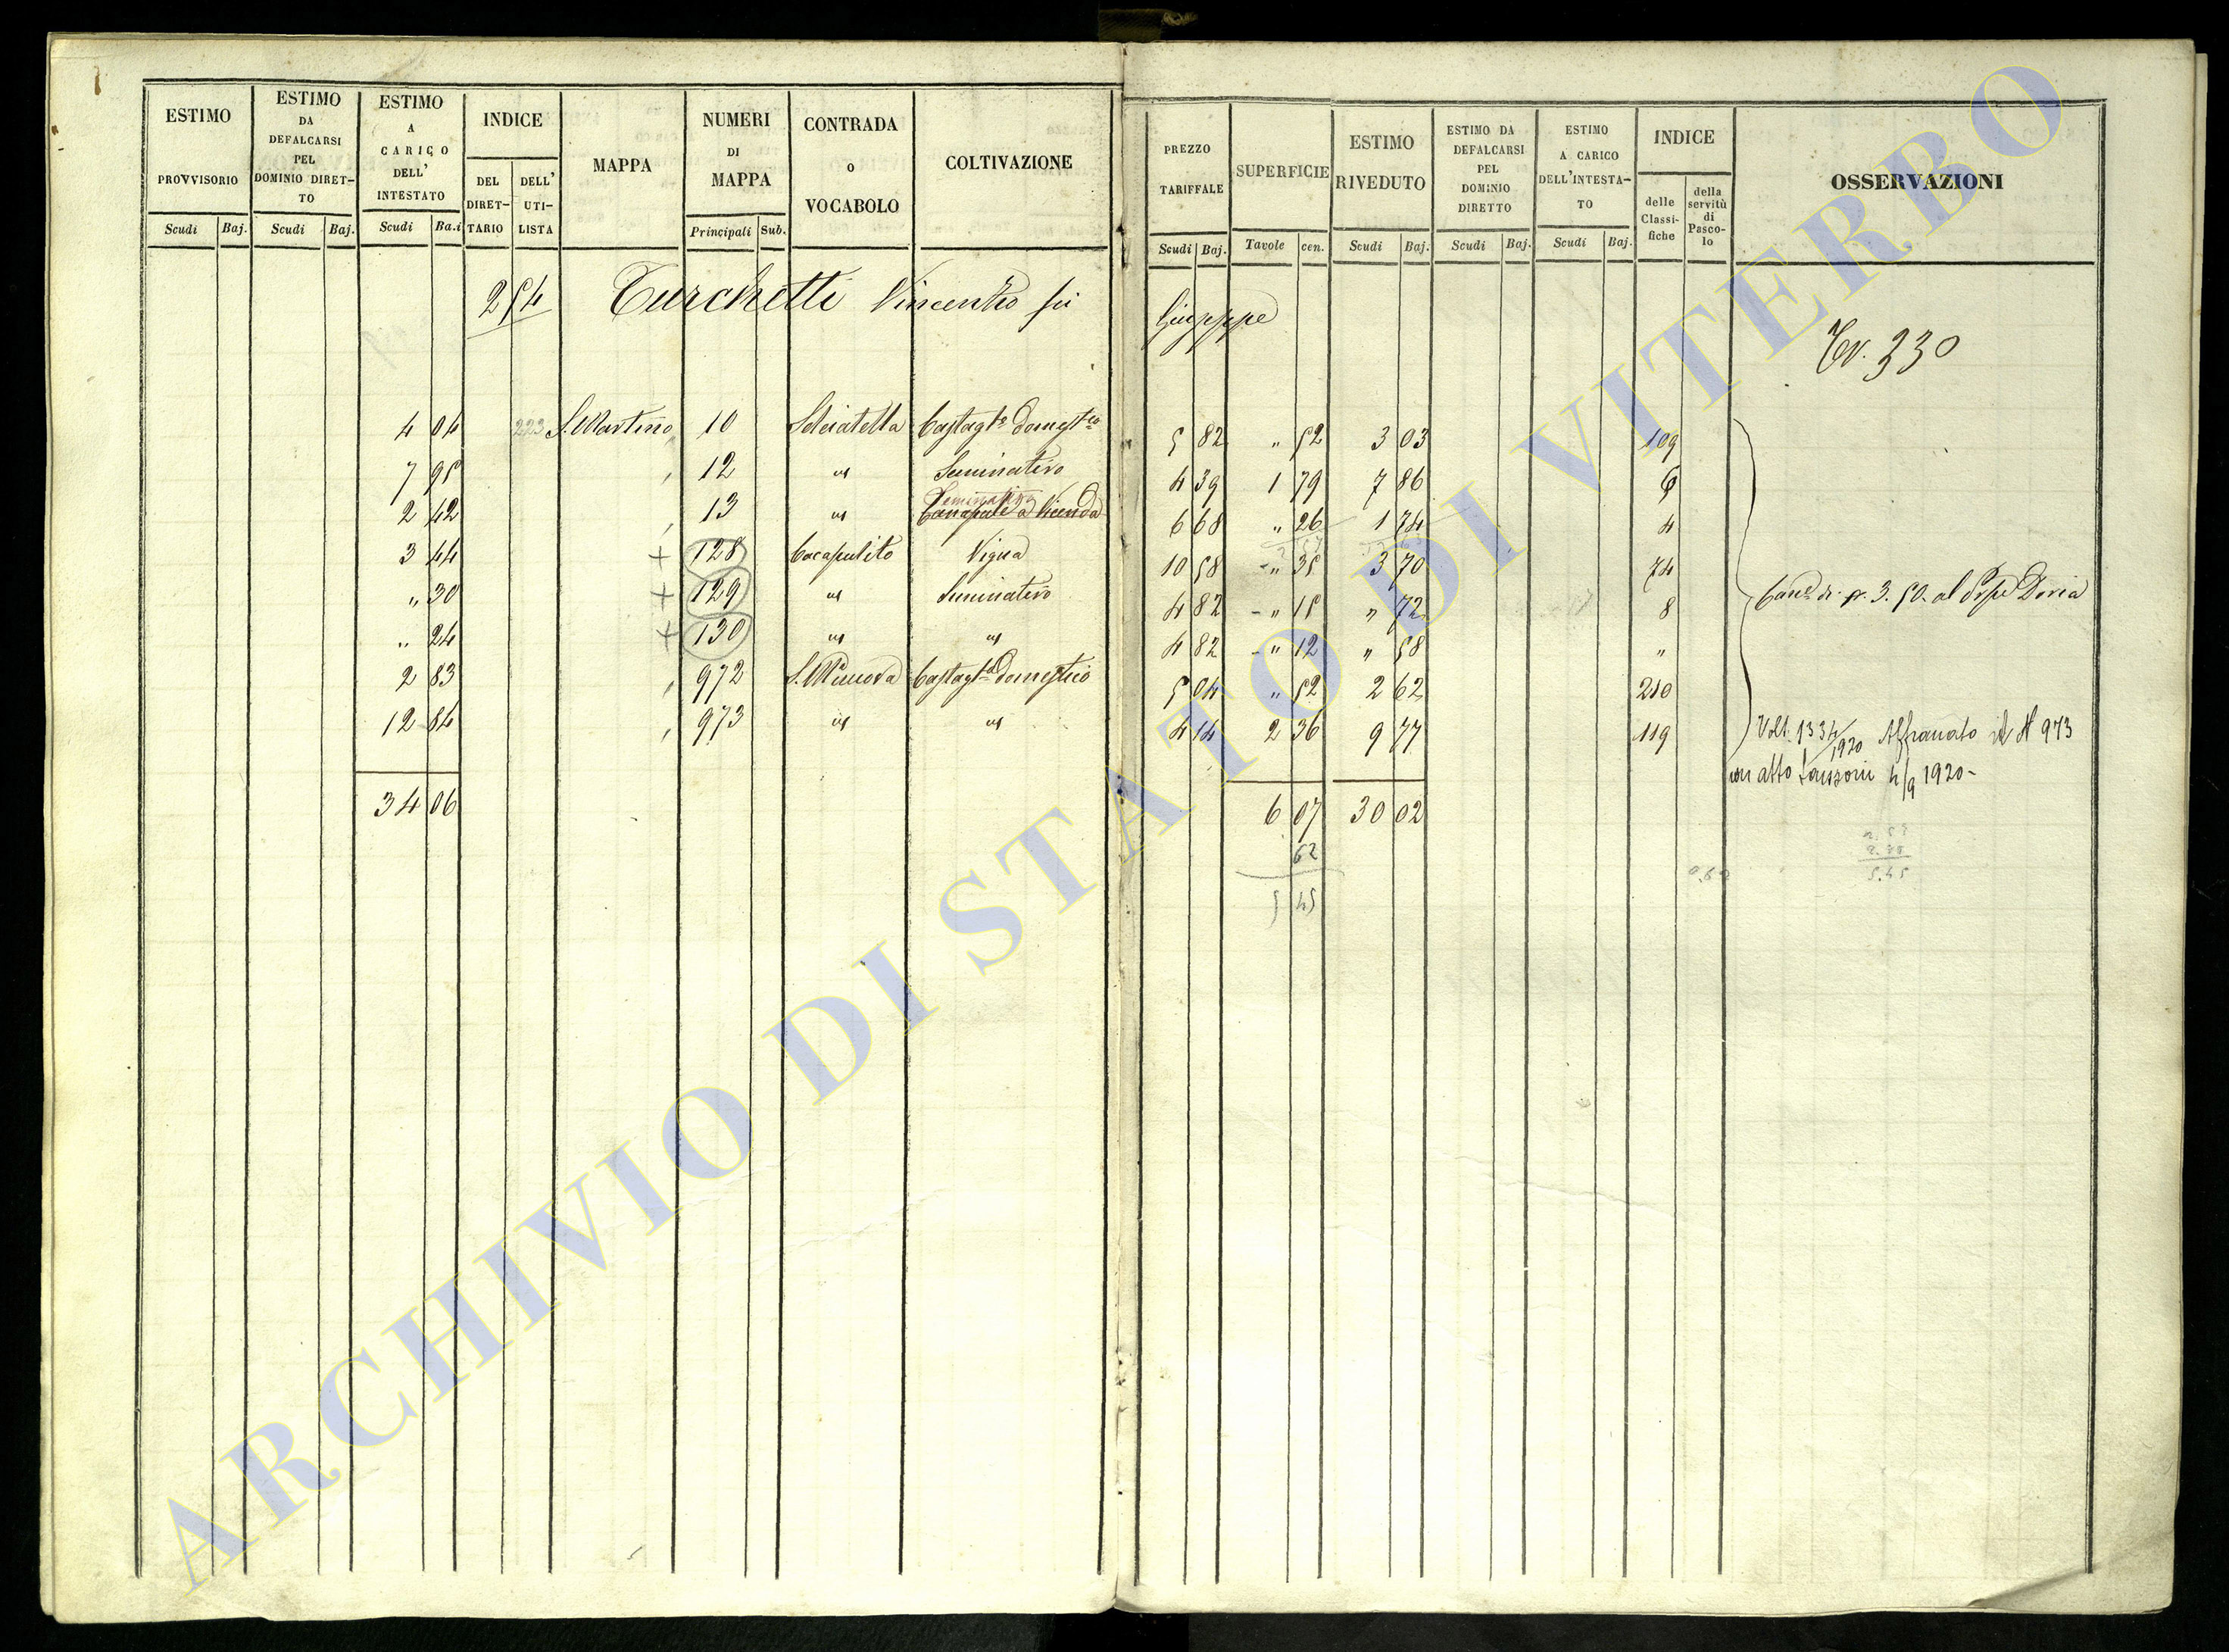 ESTIMO PROVVISORIO Scudi Baj.
ESTIMO DA DEFALCARSI PEL DOMINIO DIRET- TO Scudi Baj.
ESTIMO A CARICO DELL' INTESTATO Scudi Ba.i
INDICE DEL DIRET- TARIO DELL' UTI- LISTA
MAPPA
NUMERI DI MAPPA Principali Sub.
CONTRADA o VOCABOLO
COLTIVAZIONE
PREZZO TARIFFALE Scudi Baj.
SUPERFICIE Tavole cen.
ESTIMO RIVEDUTO Scudi Baj.
ESTIMO DA DEFALCARSI PEL DOMINIO DIRETTO Scudi Baj.
ESTIMO A CARICO DELL'INTESTA- TO Scudi Baj.
INDICE delle Classi- fiche della servitù di Pasco- lo
OSSERVAZIONI
254 Turchetti Vincenzo fu Giuseppe
330
4 04 223 S. Martino 10 Castagto domestco 5 82 " 52 3 03 109
7 95 12 id Seminativo 4 39 1 79 7 86 6
2 42 13 id Seminativo Canapule a Vicenda 6 68 " 26 1 74 4
3 44 + 128 Cacapulito Vigna 10 58 " 35 3 70 74
" 30 + 129 id Seminativo 4 82 " 15 " 72 8
" 24 + 130 id id 4 82 " 12 " 58 "
2 83 972 Castagto domestico 5 04 " 52 2 62 210
12 84 973 id id 4 14 2 36 9 77 119
34 06 6 07 30 02
62
5 45
di 3.50. al Doria
Volt. 1334/1920 Affrancato il N 973
con atto 4/9 1920-
5.45
ARCHIVIO DI STATO DI VITERBO